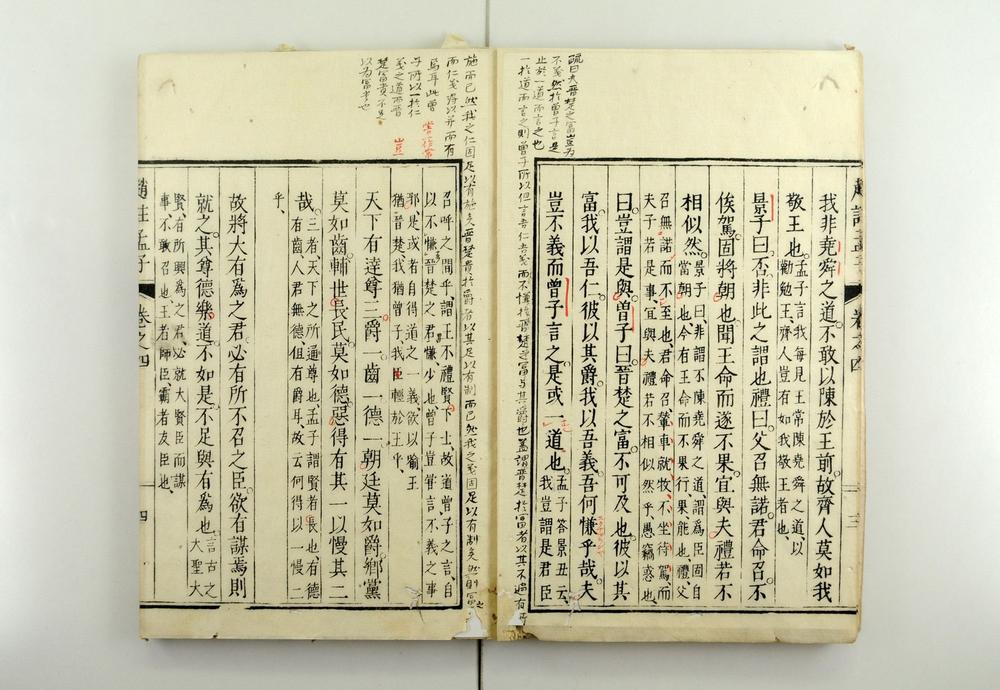 疏曰夫晉楚之富豈為
不義然於曾子言是
止於一道而言之也
一於道而言之則曾子所以但言吾仁吾義而不慊於晉楚之富与其爵也蓋謂晉楚於富者以其不過有所
卷之四
三
我非堯舜之道不敢以陳於王前故齊人莫如我
敬王也孟子言我每見王常陳堯舜之道以
勸勉王齊人豈有如我敬王者也
景子曰否非此之謂也禮曰父召無諾君命召不
俟駕固將朝也聞王命而遂不果宜與夫禮若不
相似然景子曰非謂不陳堯舜之道謂爲臣固自
當朝也今有王命而不果行果能也禮父
召無諾而不至也君命召輦車就牧不坐待駕而
夫子若是事宜與夫禮若不相似然乎愚竊惑也
曰豈謂是與曾子曰晉楚之富不可及也彼以其
富我以吾仁彼以其爵我以吾義吾何慊乎哉夫
豈不義而曾子言之是或一道也孟子答景丑云
我豈謂是君臣
施而已然我之仁固足以有施矣晉楚貴於爵者以其足以有制而已然我之義固足以有制矣然則富之
而仁義得以并而有
焉耳此曾
子所以一於仁
義之道而晉
楚富貴不足
以為富貴也
豈
召呼之間乎謂王不禮賢下士故道曾子之言自
以不慊晉楚之君慊少也曾子豈甞言不義之事
邪是或者自得道之一義欲以喻王
猶晉楚我猶曾子我臣輕於王乎
天下有達尊三爵一齒一德一朝廷莫如爵鄉黨
莫如齒輔世長民莫如德惡得有其一以慢其二
哉三者天下之所通尊也孟子謂賢者長也有德
有齒人君無德但有爵耳故云何得以一慢二
乎
故將大有爲之君必有所不召之臣欲有謀焉則
就之其尊德樂道不如是不足與有爲也言古之
大聖大
賢有所興爲之君必就大賢臣而謀
事不敢召也王者師臣霸者友臣也
趙註孟子
卷之四
四